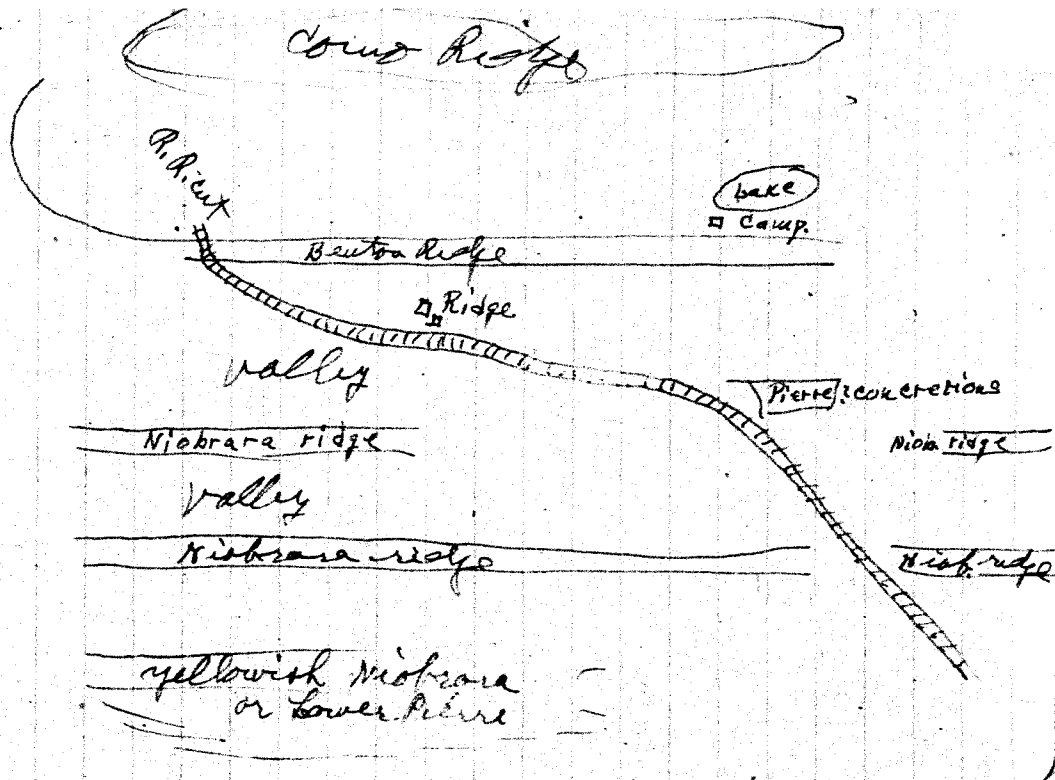 Como Ridge
R.R. cut
Lake
Camp.
Benton Ridge
Ridge
valley
Pierre concretions
Niobrara ridge
Niob. ridge
valley
Niobrara ridge
Niob. ridge
yellowish Niobrara
or Lower Pierre